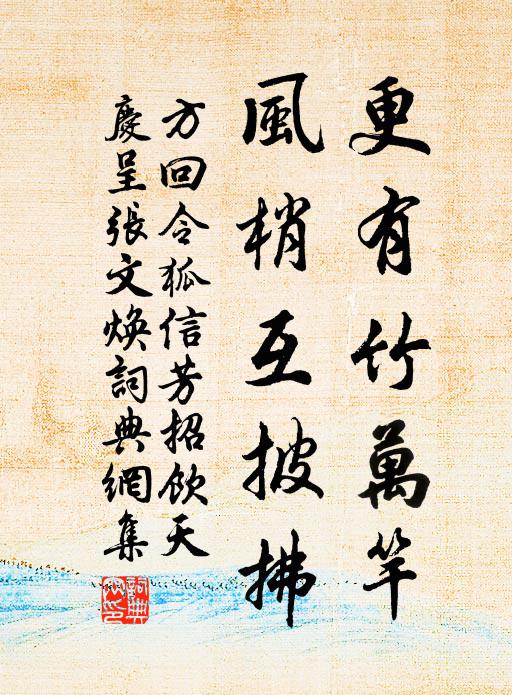 更有竹萬竿
風梢互披拂
方回令狐信芳招飲天
慶呈張文煥詞典網集